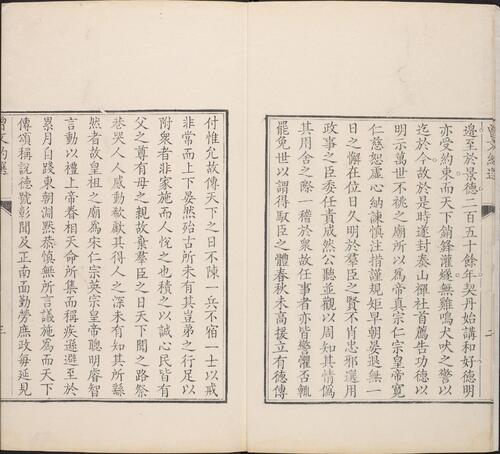 曾文約選
邊至於景德二百五十餘年契丹始講和好德明
亦受約束而天下銷鋒灌燧無雞鳴犬吠之警以
迄於今故於是時遂封泰山禪社首薦告功德以
明示萬世不祧之廟所以為帝真宗仁宗皇帝寬
仁慈恕虛心納諫慎注措謹規矩早朝晏退無一
日之懈在位日久明於羣臣之賢不肖忠邪選用
政事之臣委任責成然公聽並觀以周知其情偽
其用舍之際一稽於眾故任事者亦皆警懼否輒
罷免世以謂得馭臣之體春秋未高援立有德傳
二
付惟允故傳天下之日不陳一兵不宿一士以戒
非常而上下晏然殆古所未有其豈弟之行足以
附眾者非家施而人悅之也積之以誠心民皆有
父之尊有母之親故棄羣臣之日天下聞之路祭
巷哭人人感動歔欷其得人之深未有知其所繇
然者故皇祖之廟為宋仁宗英宗皇帝聰明睿智
言動以禮上帝眷相天命所集而稱疾遜避至於
累月自踐東朝淵默恭慎無所言議施為而天下
傳頌稱說德號彰聞及正南面勤勞庶政每延見
曾文約選
三